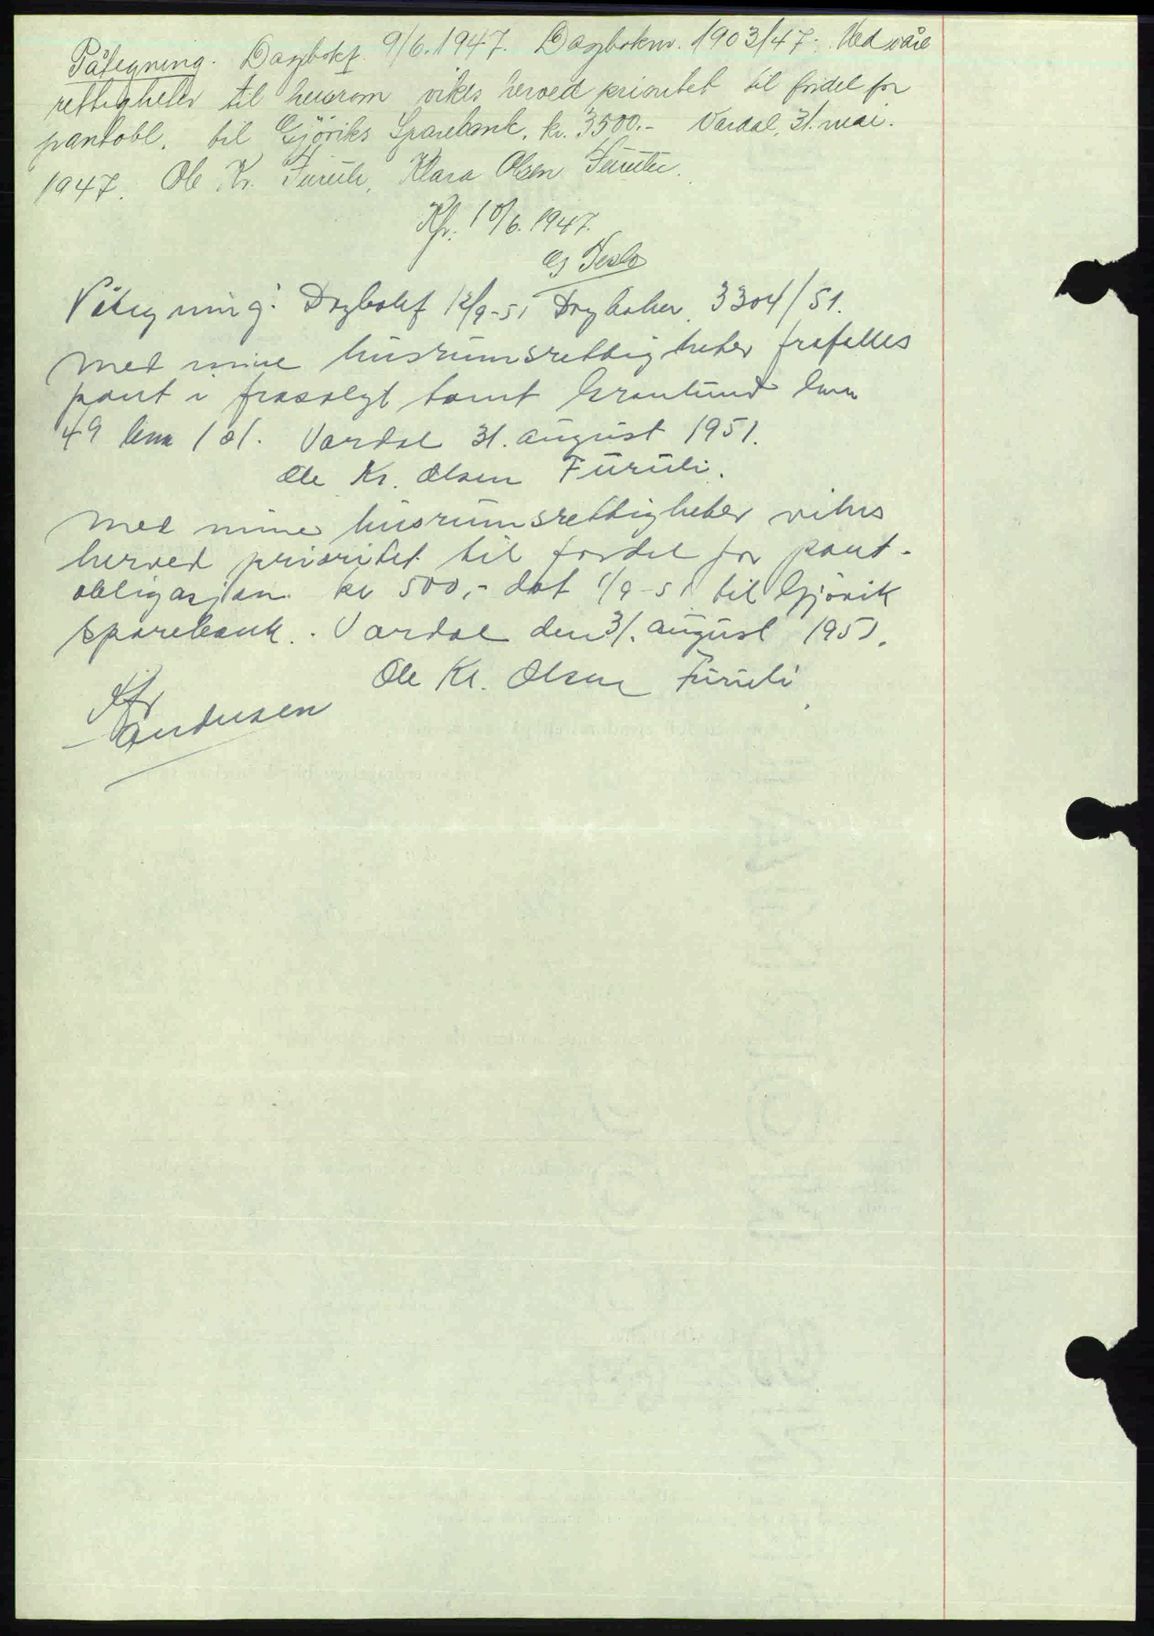 Påtegning. Dagbokf. 9/6.1947. Dagboknr. 1903/47. Ved våre
rettigheter til husrom vikes herved prioritet til fordel for
pantobl. til Gjöviks Sparebank, kr. 3500.- Vardal, 31. mai.
1947. Ole Kr. Furuli, Klara Olsen Furuli.
Kfr. 10/6. 1947.
Påtegning: Dagbokf 12/9-51 Dagboknr. 3304/51.
Med mine husrumsrettigheter frafalles
pant i frasolgt tomt Granlund
49 101. Vardal 31. august 1951.
Ole Kr. Olsen Furuli.
Med mine husrumsrettigheter vikes
herved prioritet til fordel for pant-
obligasjon kr 500,- dat 1/9-51 til Gjövik
Sparebank. Vardal den 31. august 1951.
Ole Kr. Olsen Furuli
Kfr
Andersen